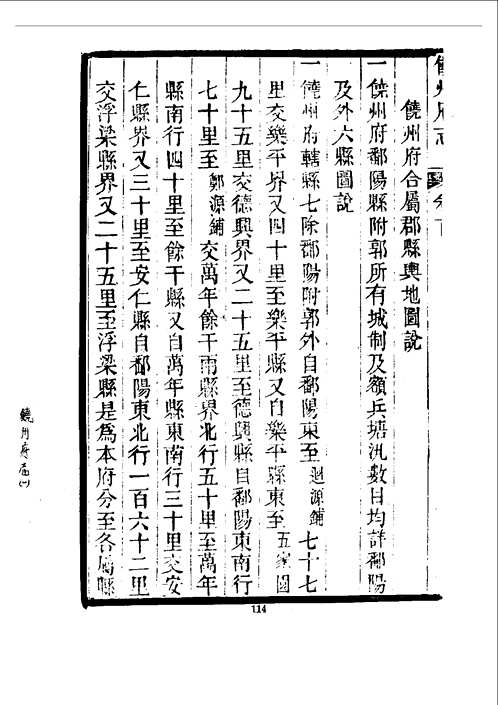 饒州府合屬郡縣輿地圖說
一饒州府鄱陽縣附郭所有城制及額兵塘汛數目均詳鄱陽
及外六縣圖說
一饒州府轄縣七除鄱陽附郭外自鄱陽東至迴源鋪七十七
里交樂平界又四十里至樂平縣又自樂平縣東至五家園
九十五里交德興界又二十五里至德興縣自鄱陽東南行
七十里至鄭源鋪交萬年餘干兩縣界北行五十里至萬年
縣南行四十里至餘干縣又自萬年縣東南行三十里交安
仁縣界又三十里至安仁縣自鄱陽東北行一百六十二里
交浮梁縣界又二十五里至浮梁縣是為本府分至各屬縣
114